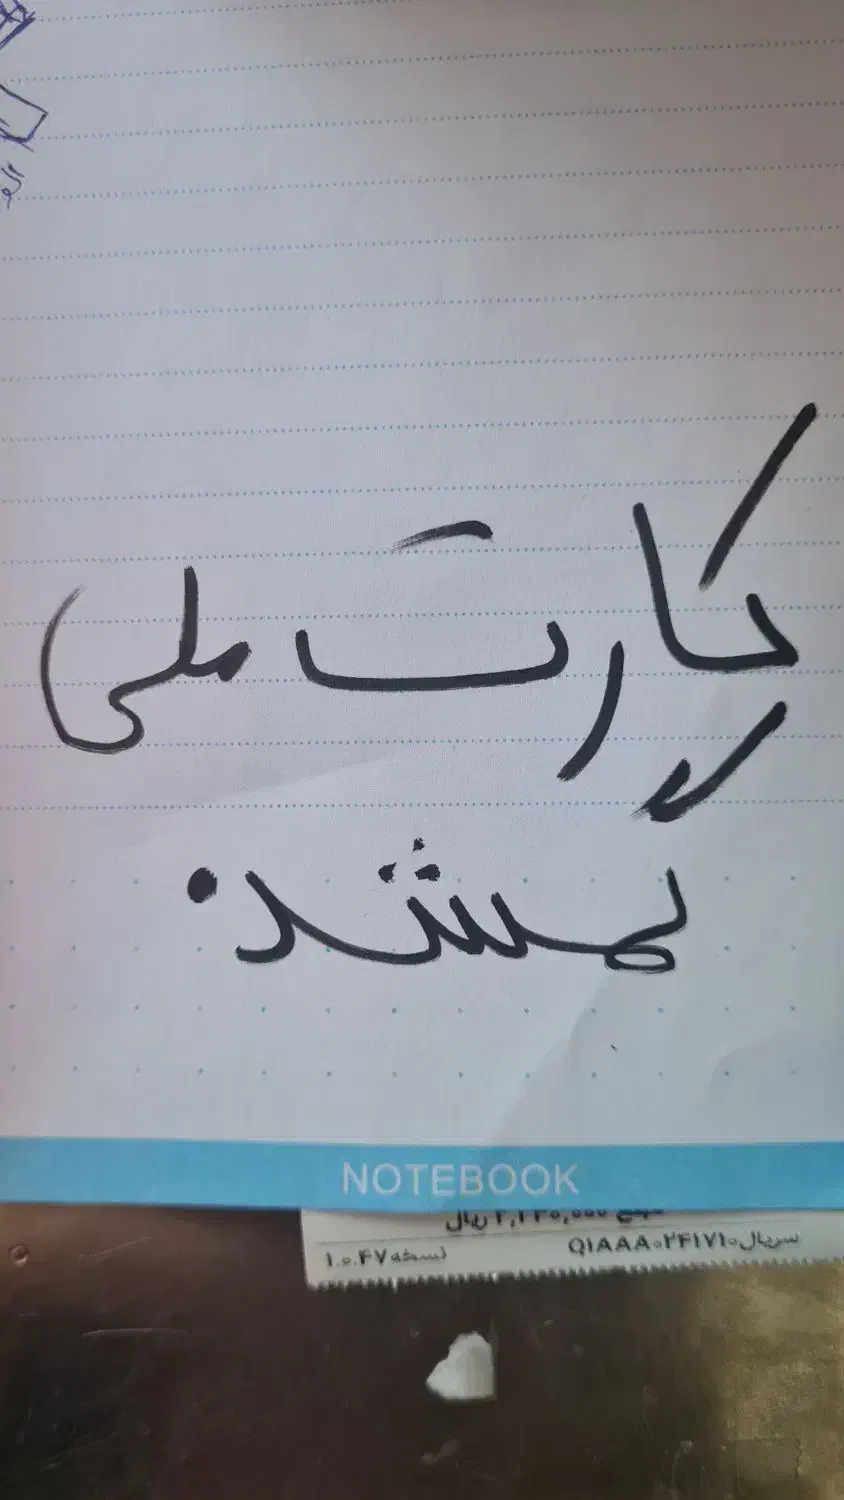 کارت ملی
گمشد.
NOTEBOOK
مبلغ ۲,۱۲۰,۰۰۰ ریال
سریال Q1AAA۰۲۴۱۷۱۰
نسخه ۱.۰.۴۷